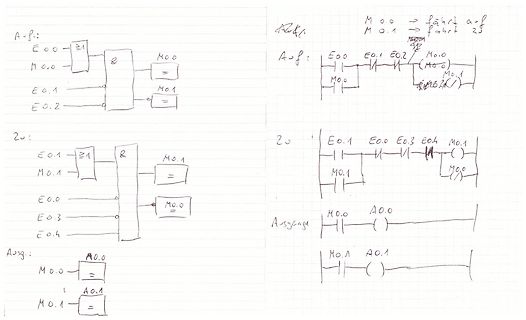 Auf:
E 0.0
M 0.0
≥1
&
M0.0
=
E 0.1
M0.1
=
E 0.2
Zu:
E 0.1
M 0.1
≥1
&
M0.1
=
E 0.0
M0.0
=
E 0.3
E 0.4
Ausg:
M 0.0
A0.0
=
M 0.1
A0.1
=
M 0.0 → fährt auf
M 0.1 → fährt zu
Auf:
E0.0 E0.1 E0.2 M0.0
(M0.0)
M0.0 M0.1
Zu:
E0.1 E0.0 E0.3 E0.4 M0.1
M0.1 M0.0
Ausgänge
M0.0 A0.0
M0.1 A0.1